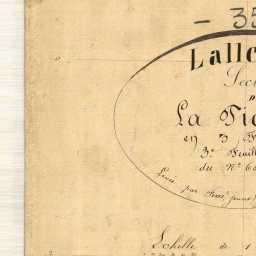 - 35
Lallc
Sec
D
La Fie
en 3 F
3e Feuill
du No
Levée par
Echelle de 1